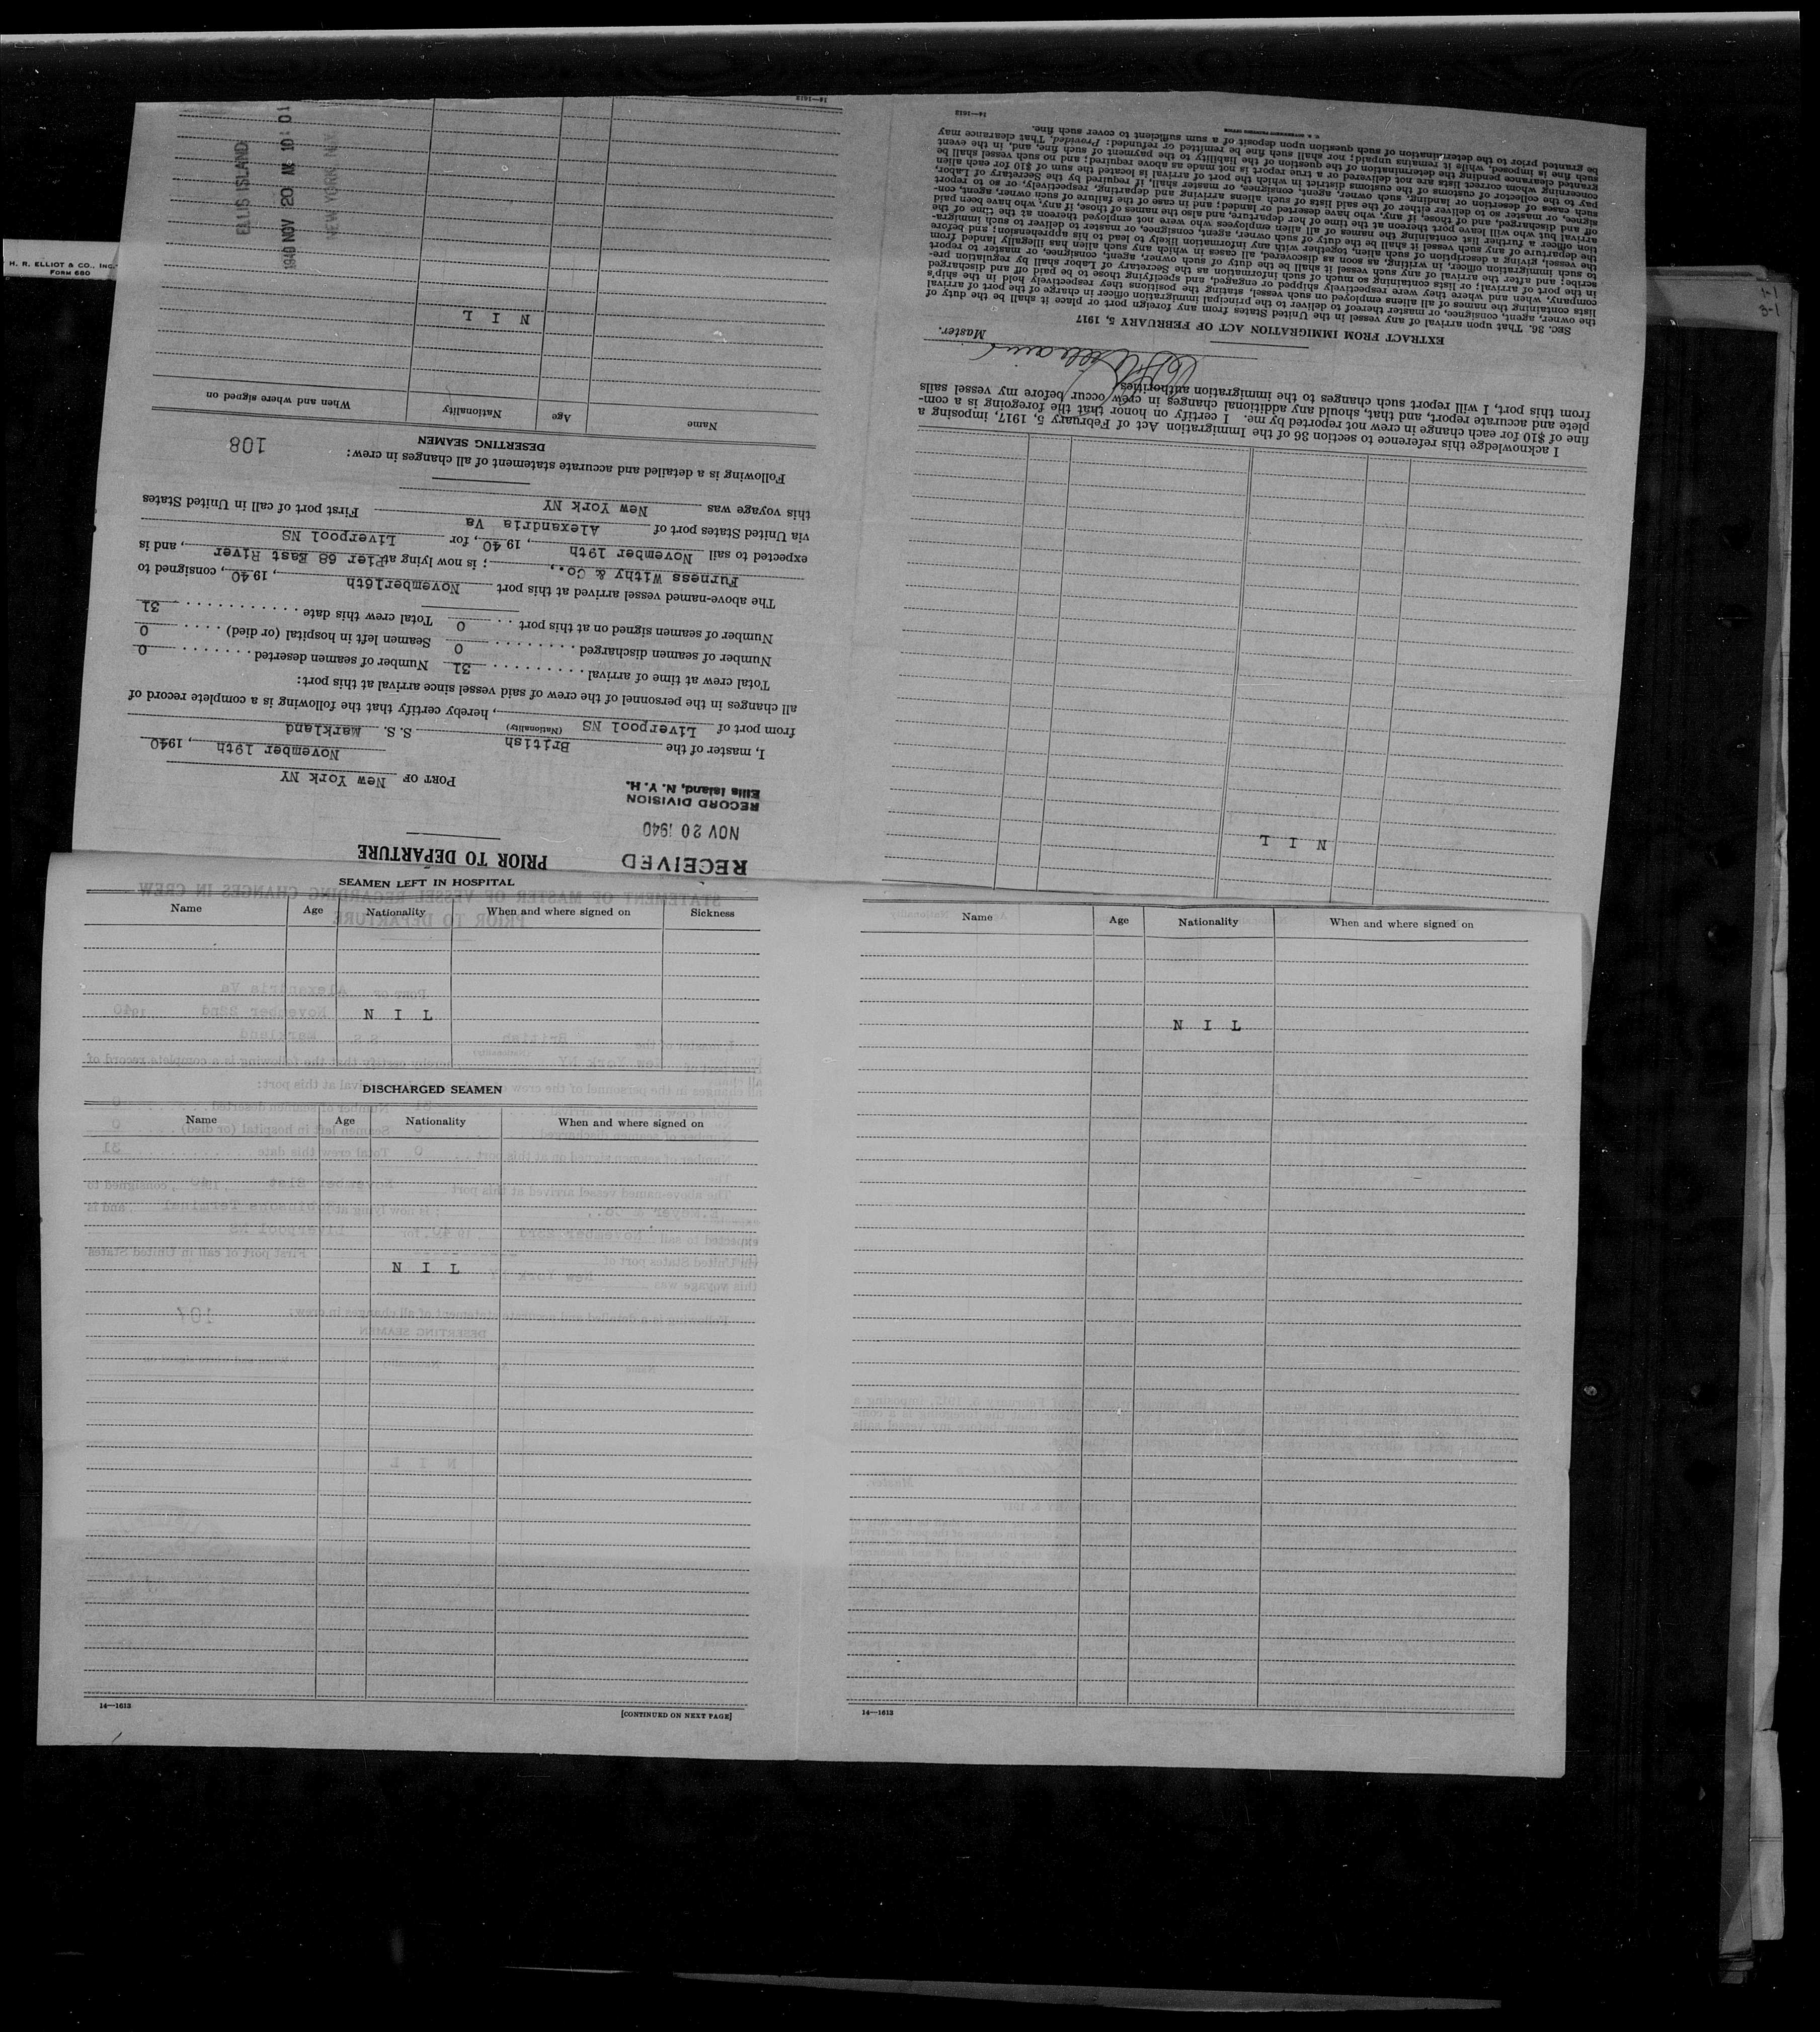 H. R. ELLIOT & CO., INC.
FORM 680
3-1
RECEIVED
NOV 20 1940
RECORD DIVISION
Ellis Island, N. Y. H.
PRIOR TO DEPARTURE
PORT OF New York NY
November 19th, 1940
I, master of the British S. S. Markland
(Nationality)
from port of Liverpool NS, hereby certify that the following is a complete record of
all changes in the personnel of the crew of said vessel since arrival at this port:
Total crew at time of arrival 31 Number of seamen deserted 0
Number of seamen discharged 0 Seamen left in hospital (or died) 0
Number of seamen signed on at this port 0 Total crew this date 31
The above-named vessel arrived at this port November 16th, 1940, consigned to
Furness Withy & Co.,; is now lying at Pier 68 East River, and is
expected to sail November 19th, 1940, for Liverpool NS
via United States port of Alexandria Va
this voyage was New York NY First port of call in United States
Following is a detailed and accurate statement of all changes in crew:
108
DESERTING SEAMEN
Name Age Nationality When and where signed on
N I L
ELLIS ISLAND
1940 NOV 20 AM 10:01
14—1613
N I L
I acknowledge this reference to section 36 of the Immigration Act of February 5, 1917, imposing a
fine of $10 for each change in crew not reported by me. I certify on honor that the foregoing is a com-
plete and accurate report, and that, should any additional changes in crew occur before my vessel sails
from this port, I will report such changes to the immigration authorities.
Master.
EXTRACT FROM IMMIGRATION ACT OF FEBRUARY 5, 1917
SEC. 36. That upon arrival of any vessel in the United States from any foreign port or place it shall be the duty of
the owner, agent, consignee, or master thereof to deliver to the principal immigration officer in charge of the port of arrival
lists containing the names of all aliens employed on such vessel, stating the positions they respectively hold in the ship's
company, when and where they were respectively shipped or engaged, and specifying those to be paid off and discharged
in the port of arrival; or lists containing so much of such information as the Secretary of Labor shall by regulation pre-
scribe; and after the arrival of any such vessel it shall be the duty of such owner, agent, consignee, or master to report
to such immigration officer, in writing, as soon as discovered, all cases in which any such alien has illegally landed from
the vessel, giving a description of such alien, together with any information likely to lead to his apprehension; and before
the departure of any such vessel it shall be the duty of such owner, agent, consignee, or master to deliver to such immigra-
tion officer a further list containing the names of all alien employees who were not employed thereon at the time of the
arrival but who will leave port thereon at the time of her departure, and also the names of those, if any, who have been paid
off and discharged, and of those, if any, who have deserted or landed; and in case of the failure of such owner, agent, con-
signee, or master so to deliver either of the said lists of such aliens arriving and departing, respectively, or so to report
such cases of desertion or landing, such owner, agent, consignee, or master shall, if required by the Secretary of Labor,
pay to the collector of customs of the customs district in which the port of arrival is located the sum of $10 for each alien
concerning whom correct lists are not delivered or a true report is not made as above required; and no such vessel shall be
granted clearance pending the determination of the question of the liability to the payment of such fine, and, in the event
such fine is imposed, while it remains unpaid; nor shall such fine be remitted or refunded: Provided, That clearance may
be granted prior to the determination of such question upon deposit of a sum sufficient to cover such fine.
U. S. GOVERNMENT PRINTING OFFICE
14—1613
SEAMEN LEFT IN HOSPITAL
Name Age Nationality When and where signed on Sickness
N I L
DISCHARGED SEAMEN
Name Age Nationality When and where signed on
N I L
14—1613
[CONTINUED ON NEXT PAGE]
Name Age Nationality When and where signed on
N I L
14—1613